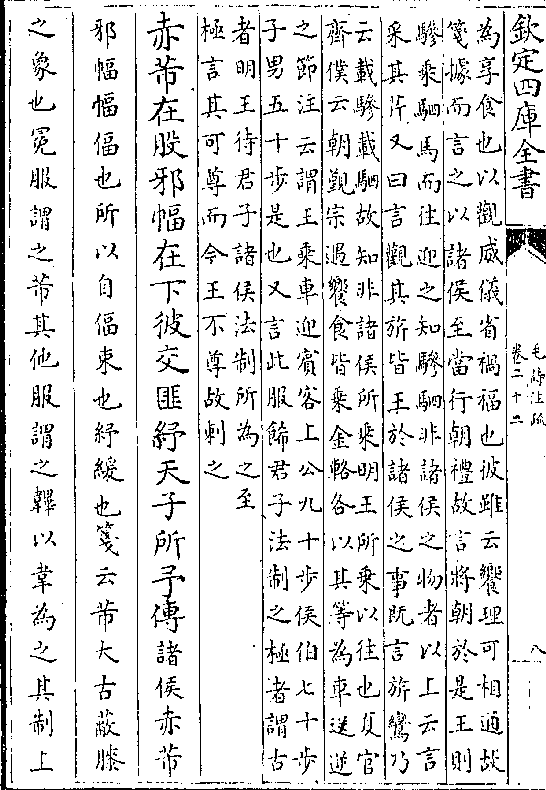 欽定四庫全書
毛詩注疏
卷二十二
八
為享食也以觀威儀省禍福也彼雖云饗理可相通故
箋據而言之以諸侯至當行朝禮故言將朝於是王則
驂乘駟馬而往迎之知驂駟非諸侯之物者以上云言
采其芹又曰言觀其旂皆王於諸侯之事既言旂鸞乃
云載驂載駟故知非諸侯所乘明王所乘以往也夏官
齊僕云朝覲宗遇饗食皆乘金輅各以其等為車送逆
之節注云謂王乘車迎賓客上公九十步侯伯七十步
子男五十步是也又言此服飾君子法制之極者謂古
者明王待君子諸侯法制所為之至
極言其可尊而今王不尊故刺之
赤芾在股邪幅在下彼交匪紓天子所予傳諸侯赤芾
邪幅幅偪也所以自偪束也紓緩也箋云芾大古蔽膝
之象也冕服謂之芾其他服謂之韠以韋為之其制上